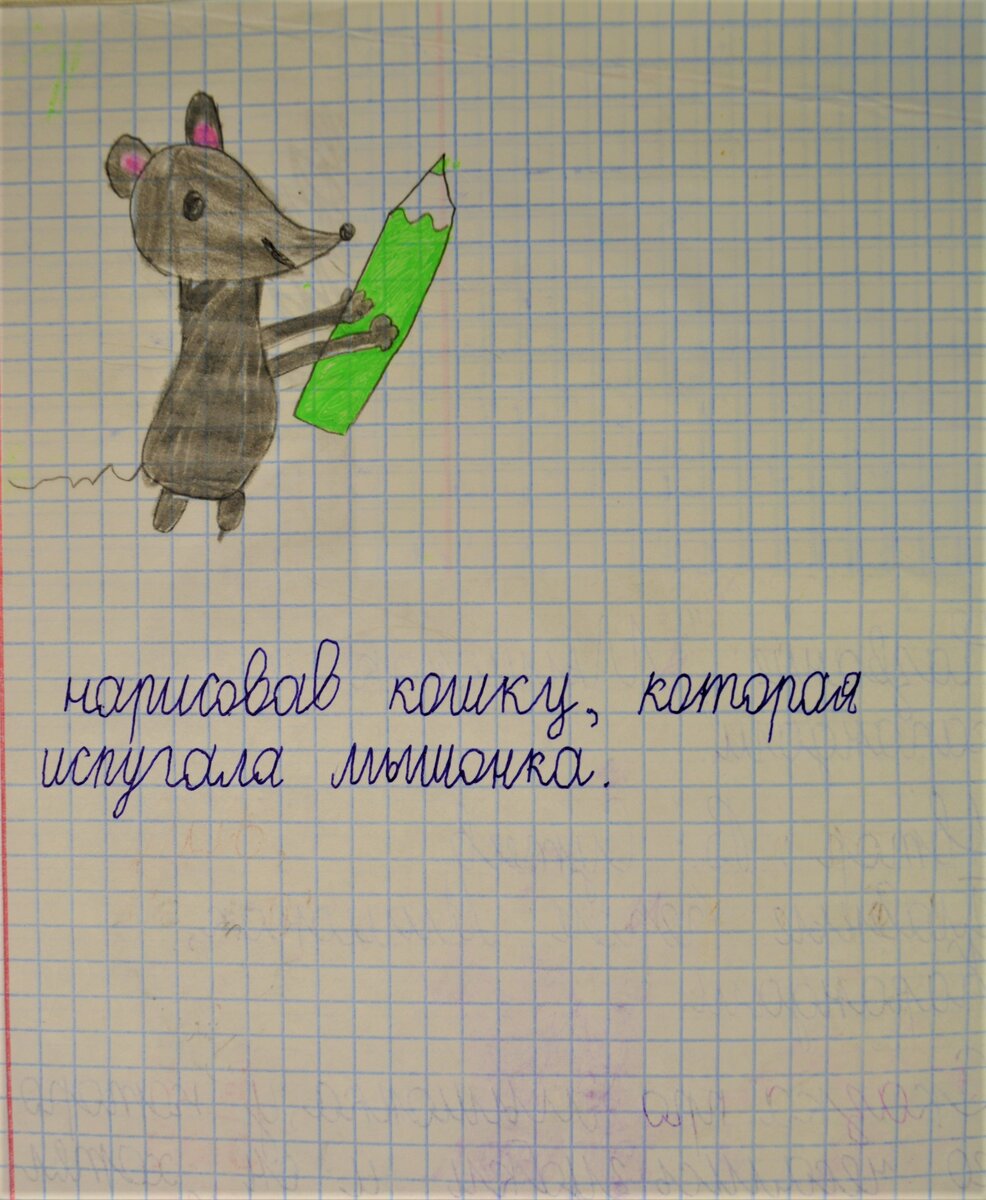 нарисовав кошку, которая
испугала мышонка.